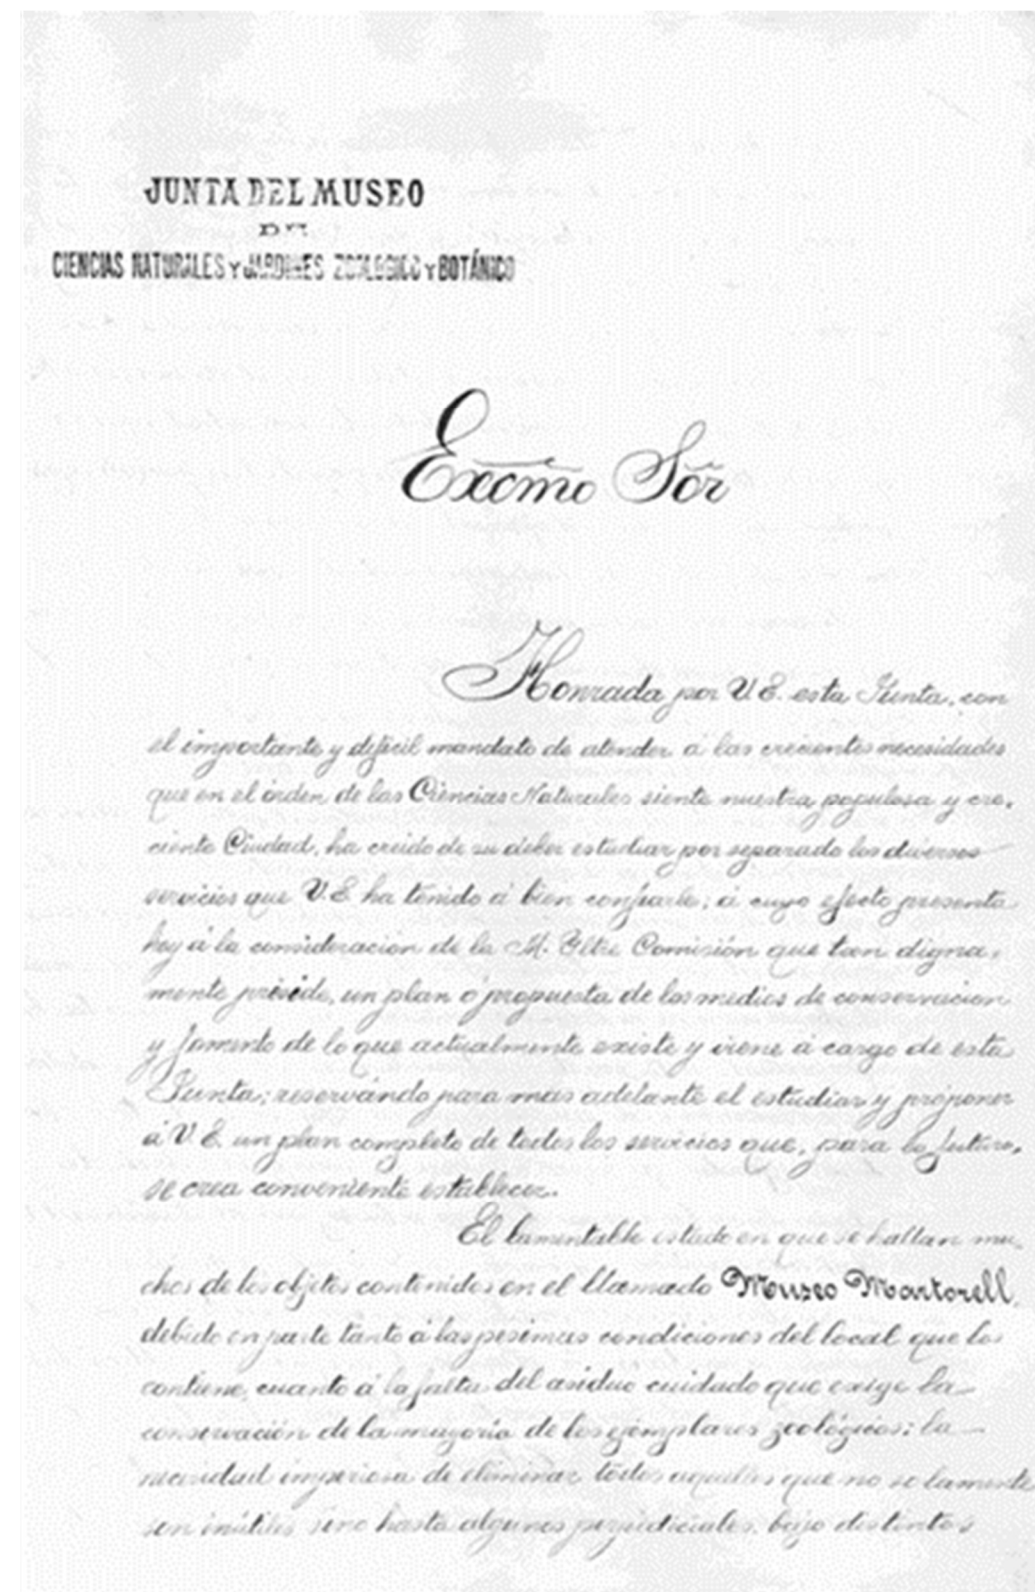 JUNTA DEL MUSEO
DE
CIENCIAS NATURALES Y JARDINES ZOOLÓGICO Y BOTÁNICO
Excmo Sor
Honrada por V. E. esta Junta, con
el importante y dificil mandato de atender á las crecientes necesidades
que en el órden de las Ciencias Naturales siente nuestra populosa y cre-
ciente Ciudad, ha creido de su deber estudiar por separado los diversos
servicios que V. E. ha tenido á bien confiarle; á cuyo efecto presenta
hoy á la consideracion de la M. Iltre Comisión que tan digna-
mente preside, un plan ó propuesta de los medios de conservacion
y fomento de lo que actualmente existe y viene á cargo de esta
Junta; reservando para mas adelante el estudiar y proponer
á V. E. un plan completo de todos los servicios que, para lo futuro,
se crea conveniente establecer.
El lamentable estado en que se hallan mu-
chos de los objetos contenidos en el llamado Museo Martorell,
debido en parte tanto á las pesimas condiciones del local que los
contiene, cuanto á la falta del asiduo cuidado que exige la
conservación de la mayoria de los ejemplares zoológicos; la
necesidad imperiosa de eliminar todos aquellos que no solamente
son inútiles sino hasta algunos perjudiciales, bajo distintos